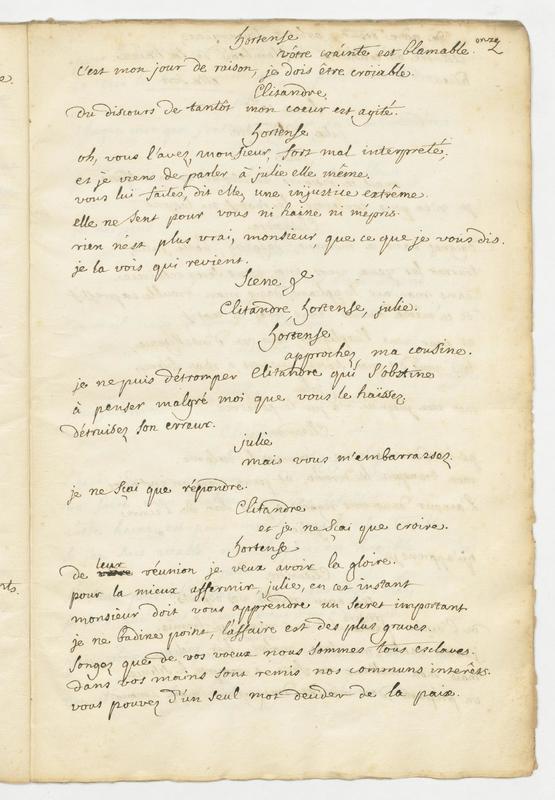 onze
hortense
vôtre crainte est blamable.
c'est mon jour de raison, je dois être croïable.
Clitandre.
du discours de tantôt mon coeur est agité.
hortense
oh, vous l'avez, monsieur, fort mal interpreté,
et je viens de parler à julie elle même.
vous lui faites, dit elle, une injustice extrême.
elle ne sent pour vous ni haine ni mépris.
rien n'est plus vrai, monsieur, que ce que je vous dis.
je la vois qui revient.
Scene 9e
Clitandre, hortense, julie.
hortense
approchez ma cousine.
je ne puis détromper Clitandre qui s'obstine
à penser malgré moi que vous le haïssez,
détruisez son erreur.
julie
mais vous m'embarrassez.
je ne sçai que répondre.
Clitandre
et je ne sçai que croire.
hortense
de leur réunion je veux avoir la gloire.
pour la mieux affermir, julie, en cet instant
monsieur doit vous apprendre un secret important
je ne badine point, l'affaire est des plus graves.
songez que de vos voeux nous sommes tous esclaves.
dans vos mains sont remis nos communs interêts.
vous pouvez d'un seul mot decider de la paix.